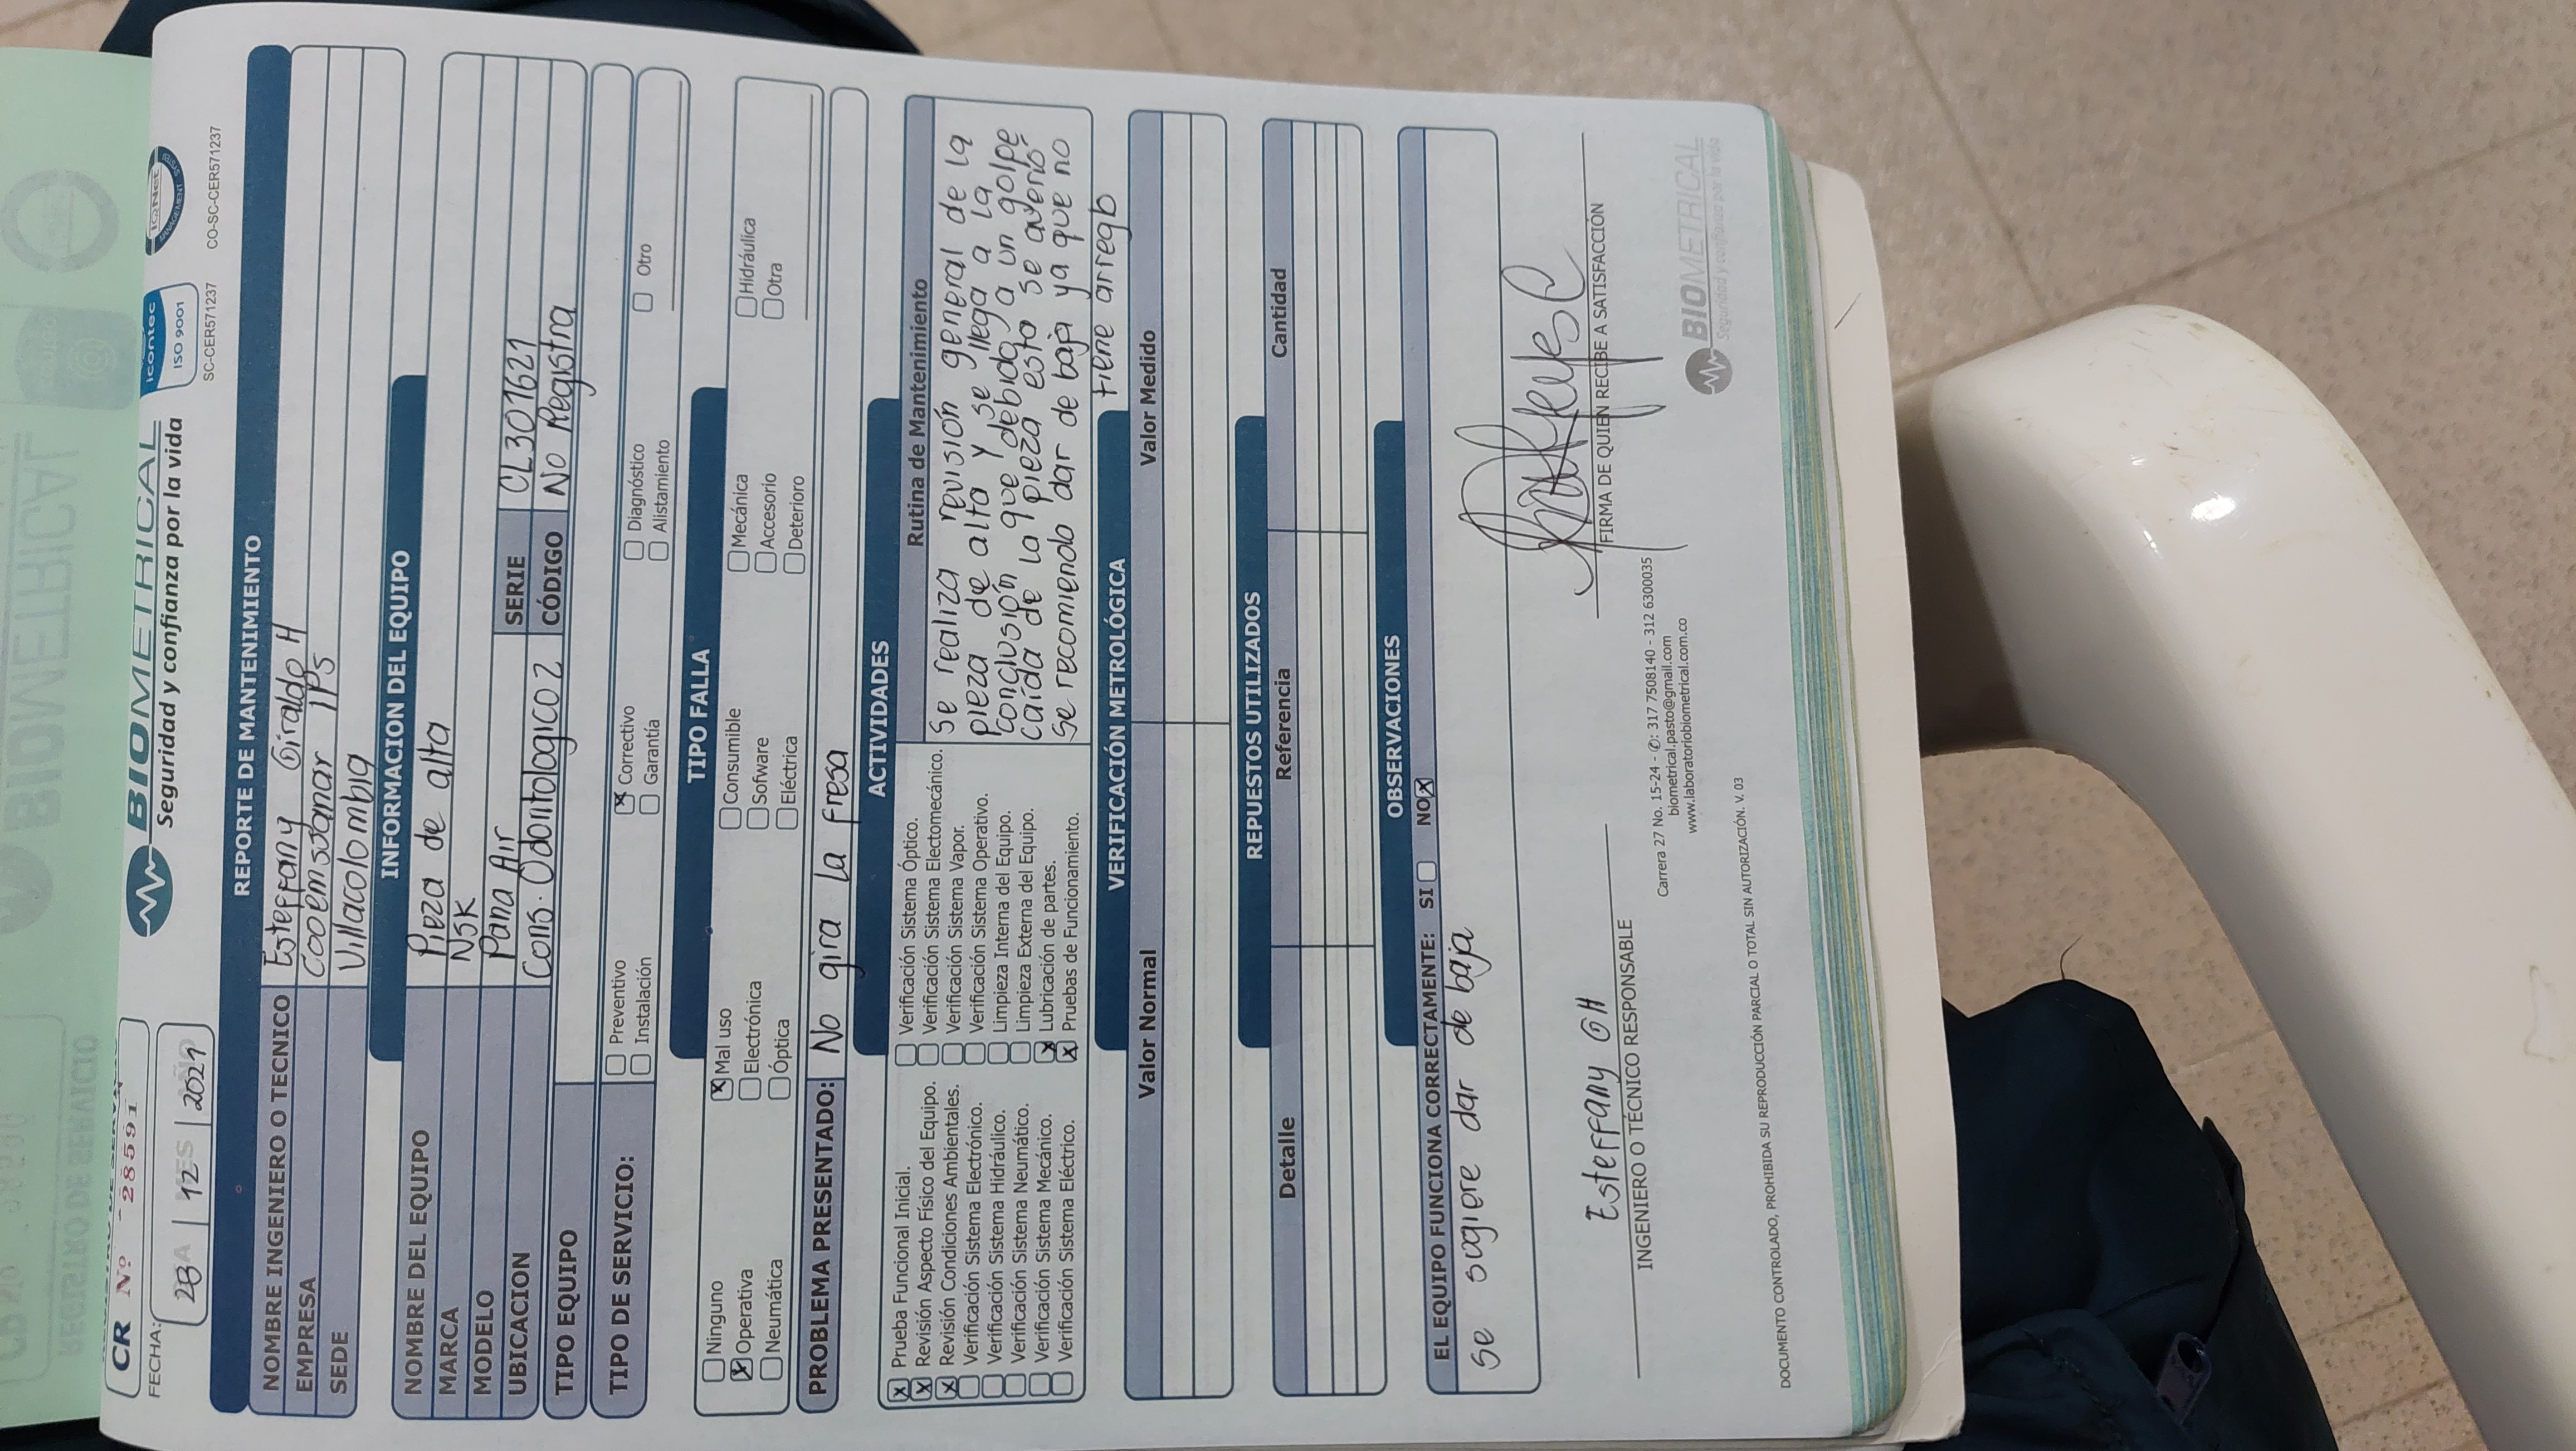 CR Nº 28591
FECHA: 28 | 12 | 2021
BIOMETRICAL
Seguridad y confianza por la vida
icontec
ISO 9001
SC-CER571237
IQNet
MANAGEMENT SYSTEM
CO-SC-CER571237
REPORTE DE MANTENIMIENTO
NOMBRE INGENIERO O TECNICO Esteffany Giraldo H
EMPRESA Cooemssanar IPS
SEDE Villacolombia
INFORMACION DEL EQUIPO
NOMBRE DEL EQUIPO Pieza de alta
MARCA NSK
MODELO Pana Air SERIE CL301621
UBICACION Cons. Odontologico 2 CÓDIGO No Registra
TIPO EQUIPO
TIPO DE SERVICIO: Preventivo Correctivo Diagnóstico Otro
Instalación Garantía Alistamiento
TIPO FALLA
Ninguno Mal uso Consumible Mecánica Hidráulica
Operativa Electrónica Sofware Accesorio Otra
Neumática Óptica Eléctrica Deterioro
PROBLEMA PRESENTADO: No gira la fresa
ACTIVIDADES
Prueba Funcional Inicial.
Revisión Aspecto Físico del Equipo.
Revisión Condiciones Ambientales.
Verificación Sistema Electrónico.
Verificación Sistema Hidráulico.
Verificación Sistema Neumático.
Verificación Sistema Mecánico.
Verificación Sistema Eléctrico.
Verificación Sistema Óptico.
Verificación Sistema Electomecánico.
Verificación Sistema Vapor.
Verificación Sistema Operativo.
Limpieza Interna del Equipo.
Limpieza Externa del Equipo.
Lubricación de partes.
Pruebas de Funcionamiento.
Rutina de Mantenimiento
Se realiza revisión general de la
pieza de alta y se llega a la
conclusión que debido a un golpe
caída de la pieza esta se averió
se recomienda dar de baja ya que no
tiene arreglo
VERIFICACIÓN METROLÓGICA
Valor Normal Valor Medido
REPUESTOS UTILIZADOS
Detalle Referencia Cantidad
OBSERVACIONES
EL EQUIPO FUNCIONA CORRECTAMENTE: SI NO
se sugiere dar de baja
Esteffany GH
INGENIERO O TÉCNICO RESPONSABLE
FIRMA DE QUIEN RECIBE A SATISFACCIÓN
Carrera 27 No. 15-24 - ✆: 317 7508140 - 312 6300035
biometrical.pasto@gmail.com
www.laboratoriobiometrical.com.co
BIOMETRICAL
Seguridad y confianza por la vida
DOCUMENTO CONTROLADO, PROHIBIDA SU REPRODUCCIÓN PARCIAL O TOTAL SIN AUTORIZACIÓN. V. 03